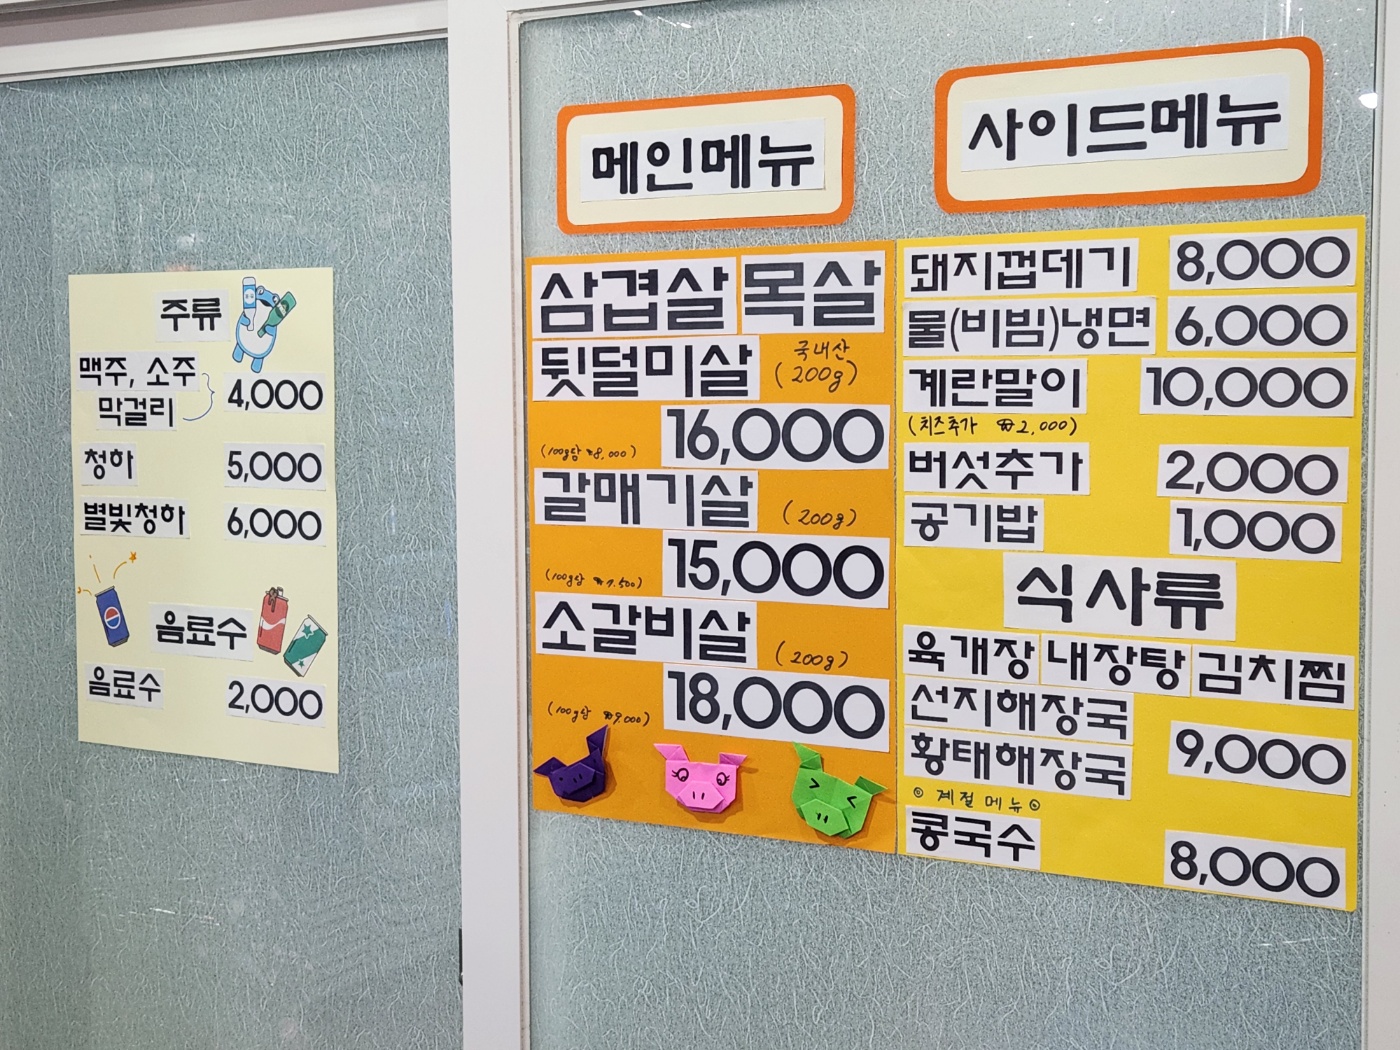 주류
맥주, 소주
막걸리
4,000
청하 5,000
별빛청하 6,000
음료수
음료수 2,000
메인메뉴
삼겹살 목살
뒷덜미살 국내산
(200g)
16,000
(100g당 ₩8,000)
갈매기살 (200g)
15,000
(100g당 ₩7,500)
소갈비살 (200g)
18,000
(100g당 ₩9,000)
사이드메뉴
돼지껍데기 8,000
물(비빔)냉면 6,000
계란말이 10,000
(치즈추가 ₩2,000)
버섯추가 2,000
공기밥 1,000
식사류
육개장 내장탕 김치찜
선지해장국
황태해장국 9,000
◎ 계절메뉴 ◎
콩국수 8,000